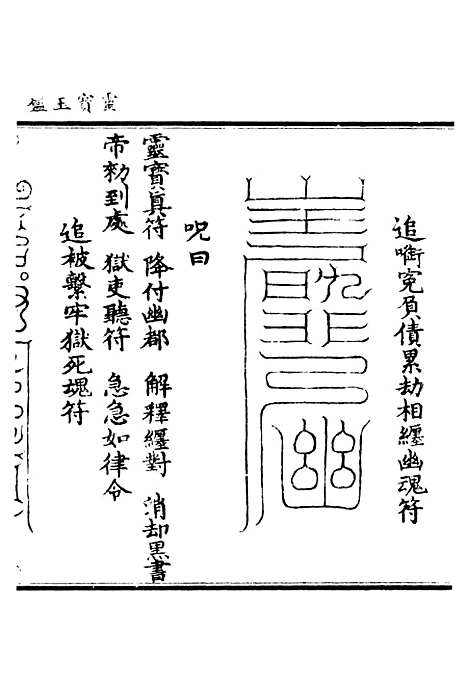 靈寶玉鑑
追衘寃負債累劫相纏幽魂符
呪曰
靈寶眞符 降付幽都 解釋纏對 消却黑書
帝勑到處 獄吏聽符 急急如律令
追被繫牢獄死魂符